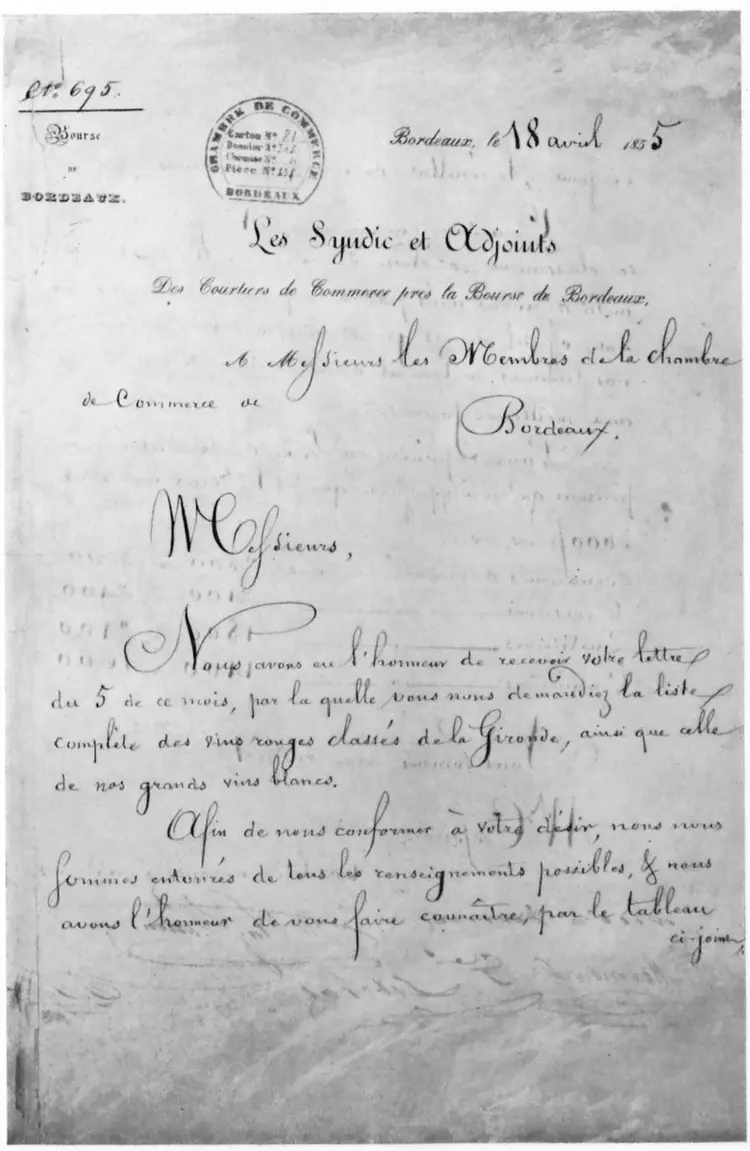 No. 695.
Bourse
DE
BORDEAUX.
CHAMBRE DE COMMERCE
Carton No
Dossier No
Chemise No
Pièce No
BORDEAUX
Bordeaux, le 18 avril 1855
Les Syndic et Adjoints
Des Courtiers de Commerce près la Bourse de Bordeaux,
A Messieurs les Membres de la chambre
de Commerce de
Bordeaux.
Messieurs,
Nous avons eu l'honneur de recevoir votre lettre
du 5 de ce mois, par la quelle vous nous demandiez la liste
complète des vins rouges classés de la Gironde, ainsi que celle
de nos grands vins blancs.
Afin de nous conformer à votre désir, nous nous
sommes entourés de tous les renseignements possibles, & nous
avons l'honneur de vous faire connaître, par le tableau
ci-joint,